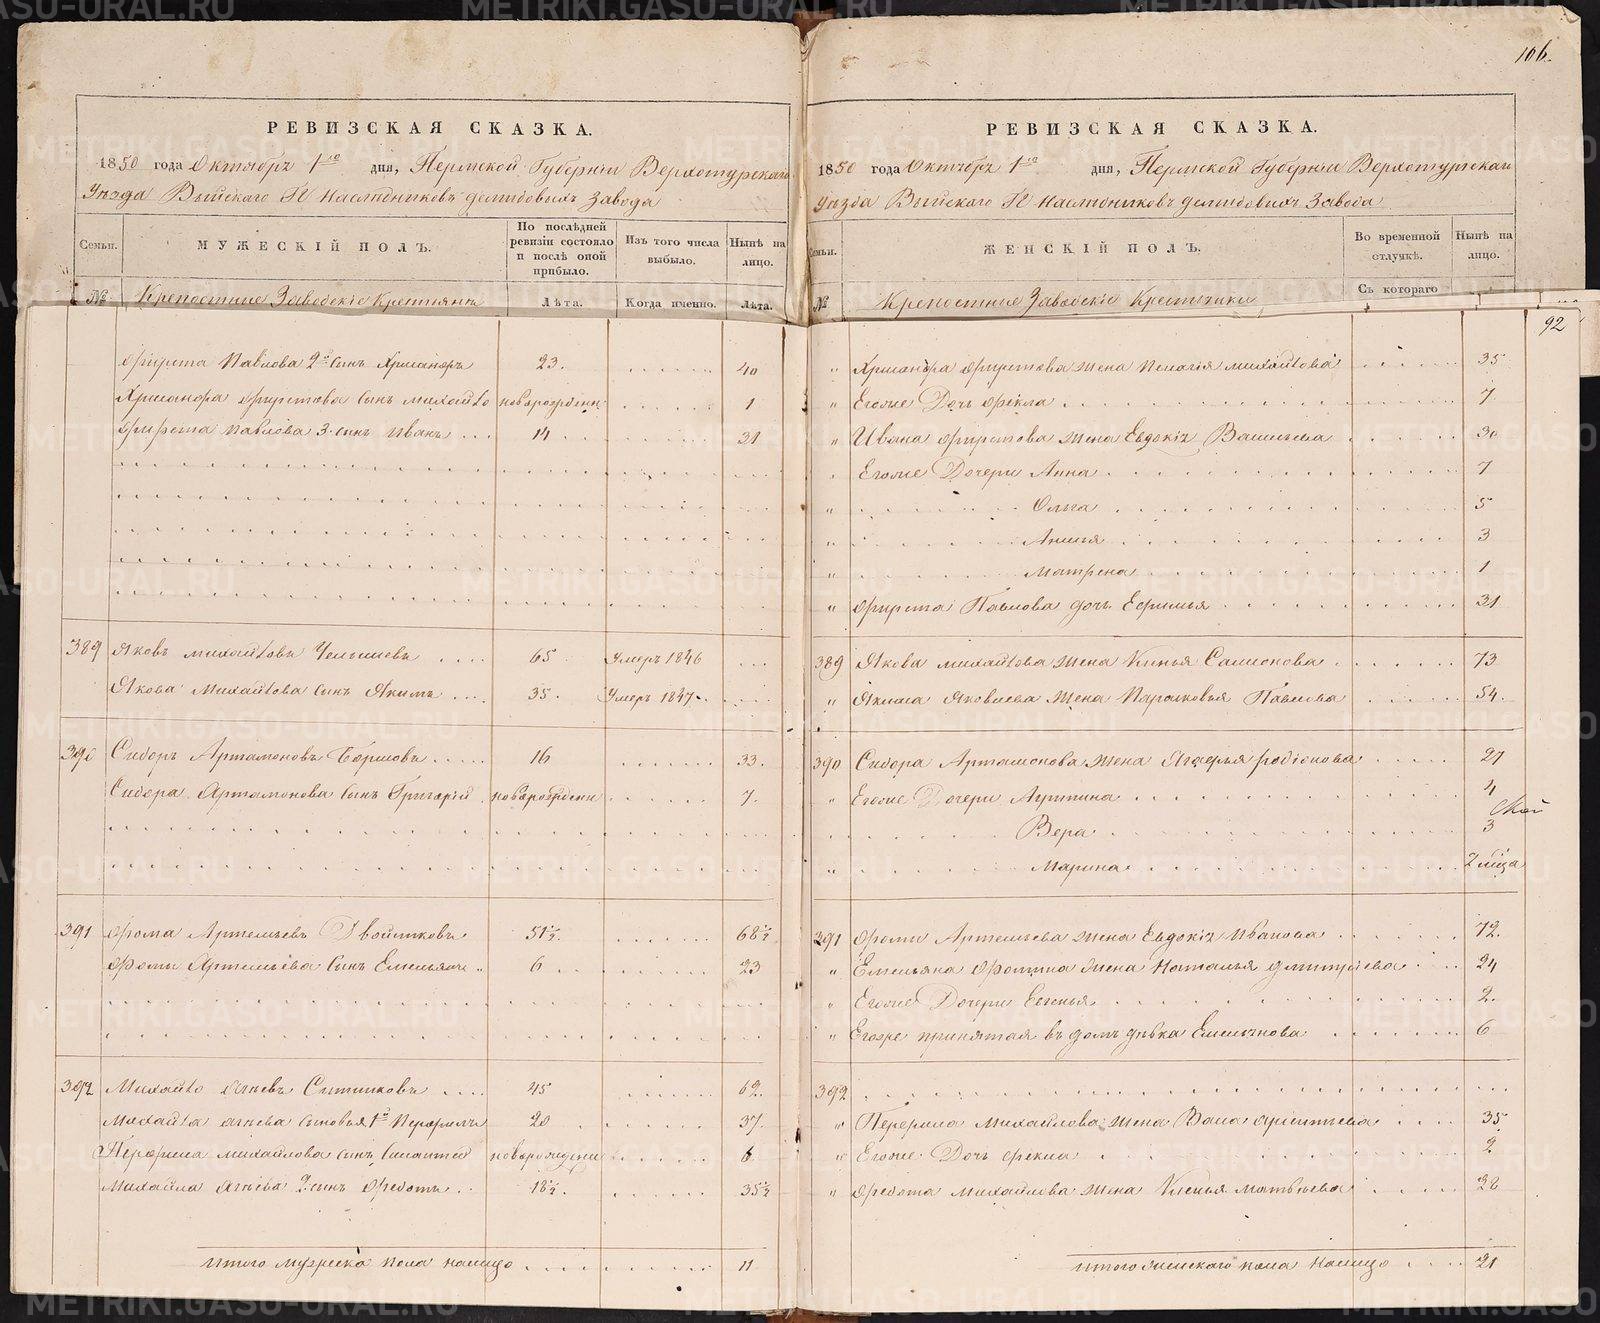 106.
РЕВИЗСКАЯ СКАЗКА.
1850 года Октябрь 1го дня, Пермской Губерніи Верхотурскаго
Уѣзда Выйскаго Гг Наслѣдниковъ Демидовыхъ Завода
Семьи. МУЖЕСКІЙ ПОЛЪ. По послѣдней ревизіи состояло и послѣ оной прибыло. Изъ того числа выбыло. Нынѣ на лицо.
№ Крепостные Заводскіе Крестьяне Лѣта. Когда именно. Лѣта.
Павлова 2й сынъ 23. 40
сынъ Михайло новорожденъ 1
Павлова 3 сынъ Иванъ 14 31
389 Яковъ Михайловъ Челышевъ 65 Умеръ 1846
Якова Михайлова сынъ Якимъ 35. Умеръ 1847
390 Сидоръ Артамоновъ 16 33.
Сидора Артамонова сынъ Григорій новорожденъ 7.
391 Фома Артемьевъ 51½ 68½
Фомы Артемьева сынъ Емельянъ 6 23
392 Михайло Ситниковъ 45 62
Михайла сыновья 1й Перфилъ 20 37.
Перфила Михайлова сынъ новорожденъ 6
Михайла 2 сынъ Федотъ 18½. 35½
Итого мужеска пола налицо 11
РЕВИЗСКАЯ СКАЗКА.
1850 года Октября 1го дня, Пермской Губерніи Верхотурскаго
Уѣзда Выйскаго Гг Наслѣдниковъ Демидовыхъ Завода
Семьи. ЖЕНСКІЙ ПОЛЪ. Во временной отлучкѣ. Нынѣ на лицо.
№ Крепостные Заводскіе Крестьянки Съ котораго
92
жена Пелагія Михайлова 35
" Егоже Дочь Фекла 7
" Ивана жена Евдокія Васильева 30
" Егоже Дочери Анна 7
" Ольга 5
" Анисья 3
" Матрена 1
" Павлова дочь Ефимья 31
389 Якова Михайлова жена Симонова 73
" Якима Яковлева жена Парасковья Павлова 54.
390 Сидора Артамонова жена Агафья Родіонова 27
" Егоже Дочери 4
Вера 3
" Марина 2 мѣца
391 Фомы Артемьева жена Евдокія Иванова 72.
" Емельяна Фомина жена Наталья Дмитріева 24
" Егоже Дочери Евгенья 2.
" принятая въ домъ дѣвка Емельянова 6
392
" Перфила Михайлова жена 35
" Егоже Дочь Фекла 2
" Федота Михайлова жена Ксенья Матвѣева 28
Итого женскаго пола налицо 21